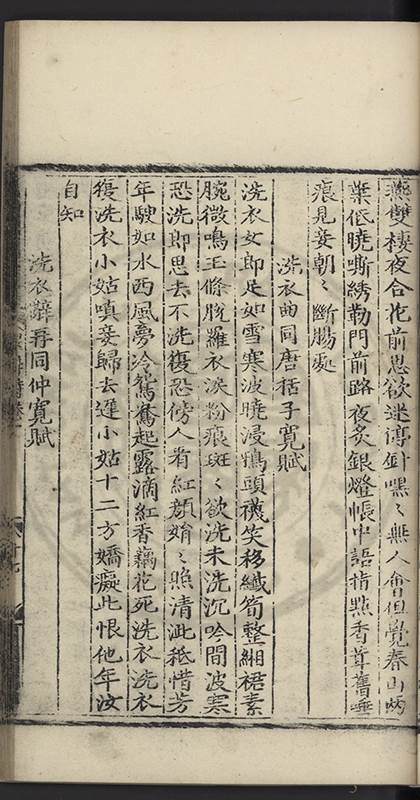 燕雙棲夜合花前思欲迷停針嘿〻無人會但覺春山
葉低曉嘶綉勒門前路夜炙銀燈帳中語指點香茸舊唾
痕見妾朝〻斷腸處
洗衣曲同唐括子寬賦
洗衣女郎足如雪寒波曉浸鴉頭襪笑移纖筍整緗裙素
腕微鳴玉條脫羅衣淡粉痕斑〻欲洗未洗沉吟間波寒
恐洗郎思去不洗復恐傍人看紅顏娟〻照清泚秪惜芳
年駛如水西風夢冷鴛鴦起露滴紅香藕花死洗衣洗衣
復洗衣小姑嗔妾歸去遲小姑十二方嬌癡此恨他年汝
自知
洗衣辭再同仲寬賦